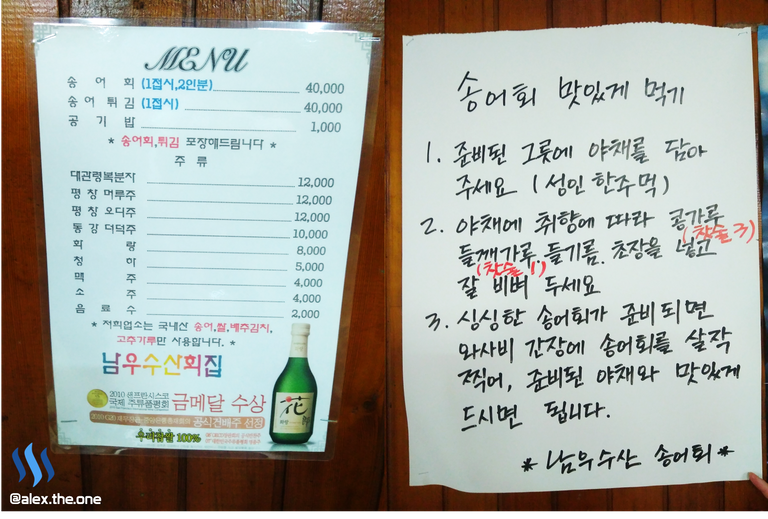 MENU
송 어 회 (1접시,2인분) 40,000
송 어 튀 김 (1접시) 40,000
공 기 밥 1,000
* 송어회,튀김 포장해드립니다 *
주 류
대관령복분자 12,000
평 창 머루주 12,000
평 창 오디주 12,000
동 강 더덕주 10,000
화 랑 8,000
청 하 5,000
맥 주 4,000
소 주 4,000
음 료 수 2,000
* 저희업소는 국내산 송어,쌀,배추김치,
고추가루만 사용합니다. *
남우수산회집
2010 샌프란시스코
국제 주류품평회 금메달 수상
공식건배주 선정
우리찹쌀 100%
花
@alex.the.one
송어회 맛있게 먹기
1. 준비된 그릇에 야채를 담아
주세요 (성인 한주먹)
2. 야채에 취향에 따라 콩가루
(찻술3)
들깨가루, 들기름, 초장을 넣고
(찻술1)
잘 비벼 두세요
3. 싱싱한 송어회가 준비되면
와사비 간장에 송어회를 살짝
찍어, 준비된 야채와 맛있게
드시면 됩니다.
* 남우수산 송어회 *